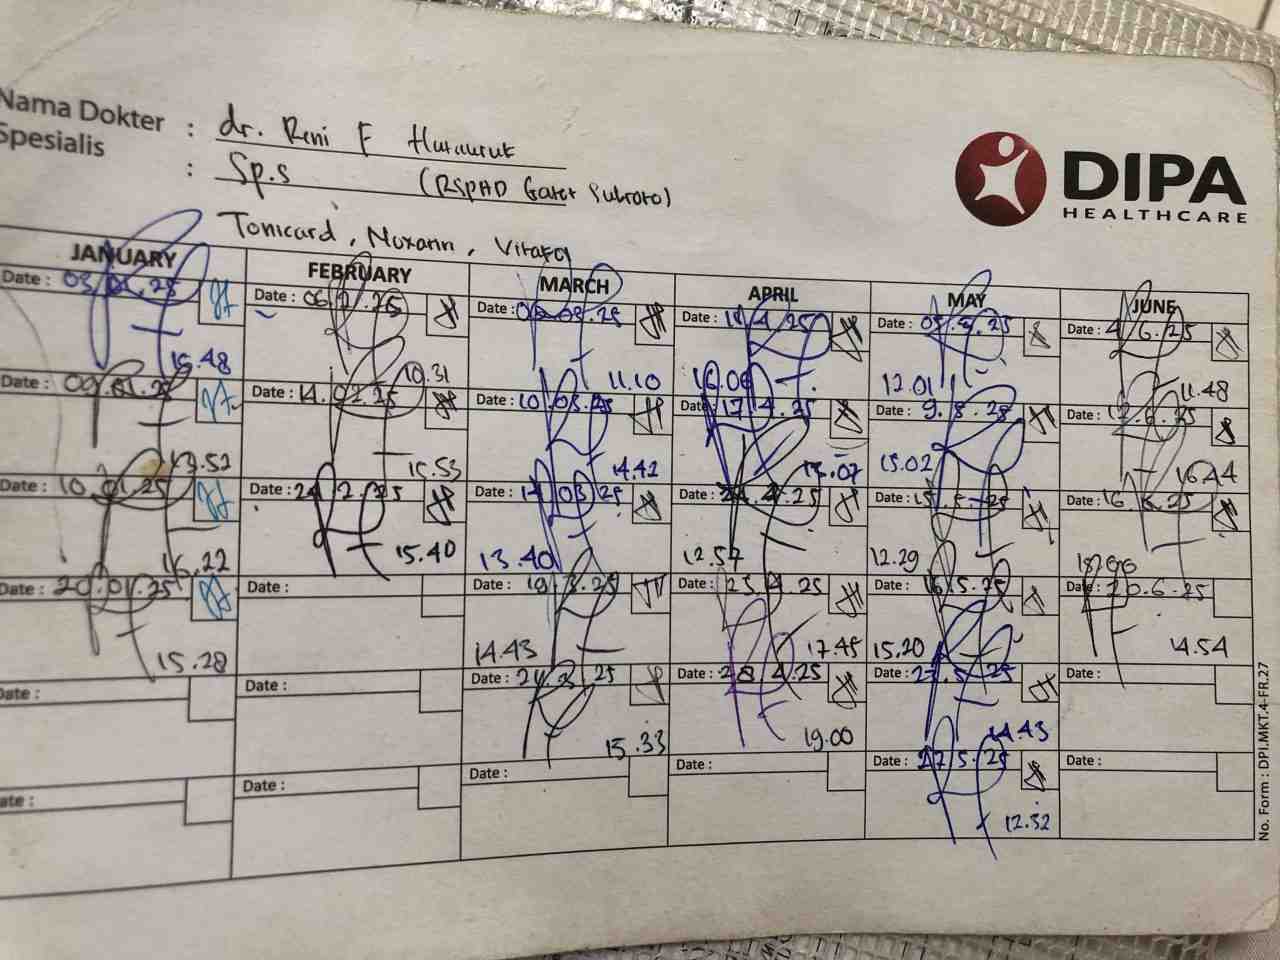 Nama Dokter : dr. Reni F Hutauruk
Spesialis : Sp.s (RSPAD Gatot Subroto)
DIPA
HEALTHCARE
Tonicard, Vitafol
JANUARY FEBRUARY MARCH APRIL MAY JUNE
Date : 03.01.25 Date : 06.2.25 Date : 03.25 Date : 4.25 Date : 25 Date : 4.6.25
15.48 10.31 11.10 16.06 12.01 11.48
Date : 09.01.25 Date : 14.02.25 Date : 10.03.25 Date : 17.4.25 Date : 9.5.25 Date : 12.6.25
13.52 15.53 14.42 15.07 15.02 16.44
Date : 10.01.25 Date : 24.2.25 Date : 03.25 Date : 24.4.25 Date : 15.5.25 Date : 16.6.25
16.22 15.40 13.40 12.57 12.29
Date : 20.01.25 Date : Date : 19.3.25 Date : 25.4.25 Date : 16.5.25 Date : 20.6.25
15.28 14.43 17.45 15.20 14.54
Date : Date : Date : 24.3.25 Date : 28.4.25 Date : 5.25 Date :
15.33 19.00 14.43
Date : Date : Date : Date : Date : 27.5.25 Date :
12.32
No. Form : DPI.MKT.4-FR.27